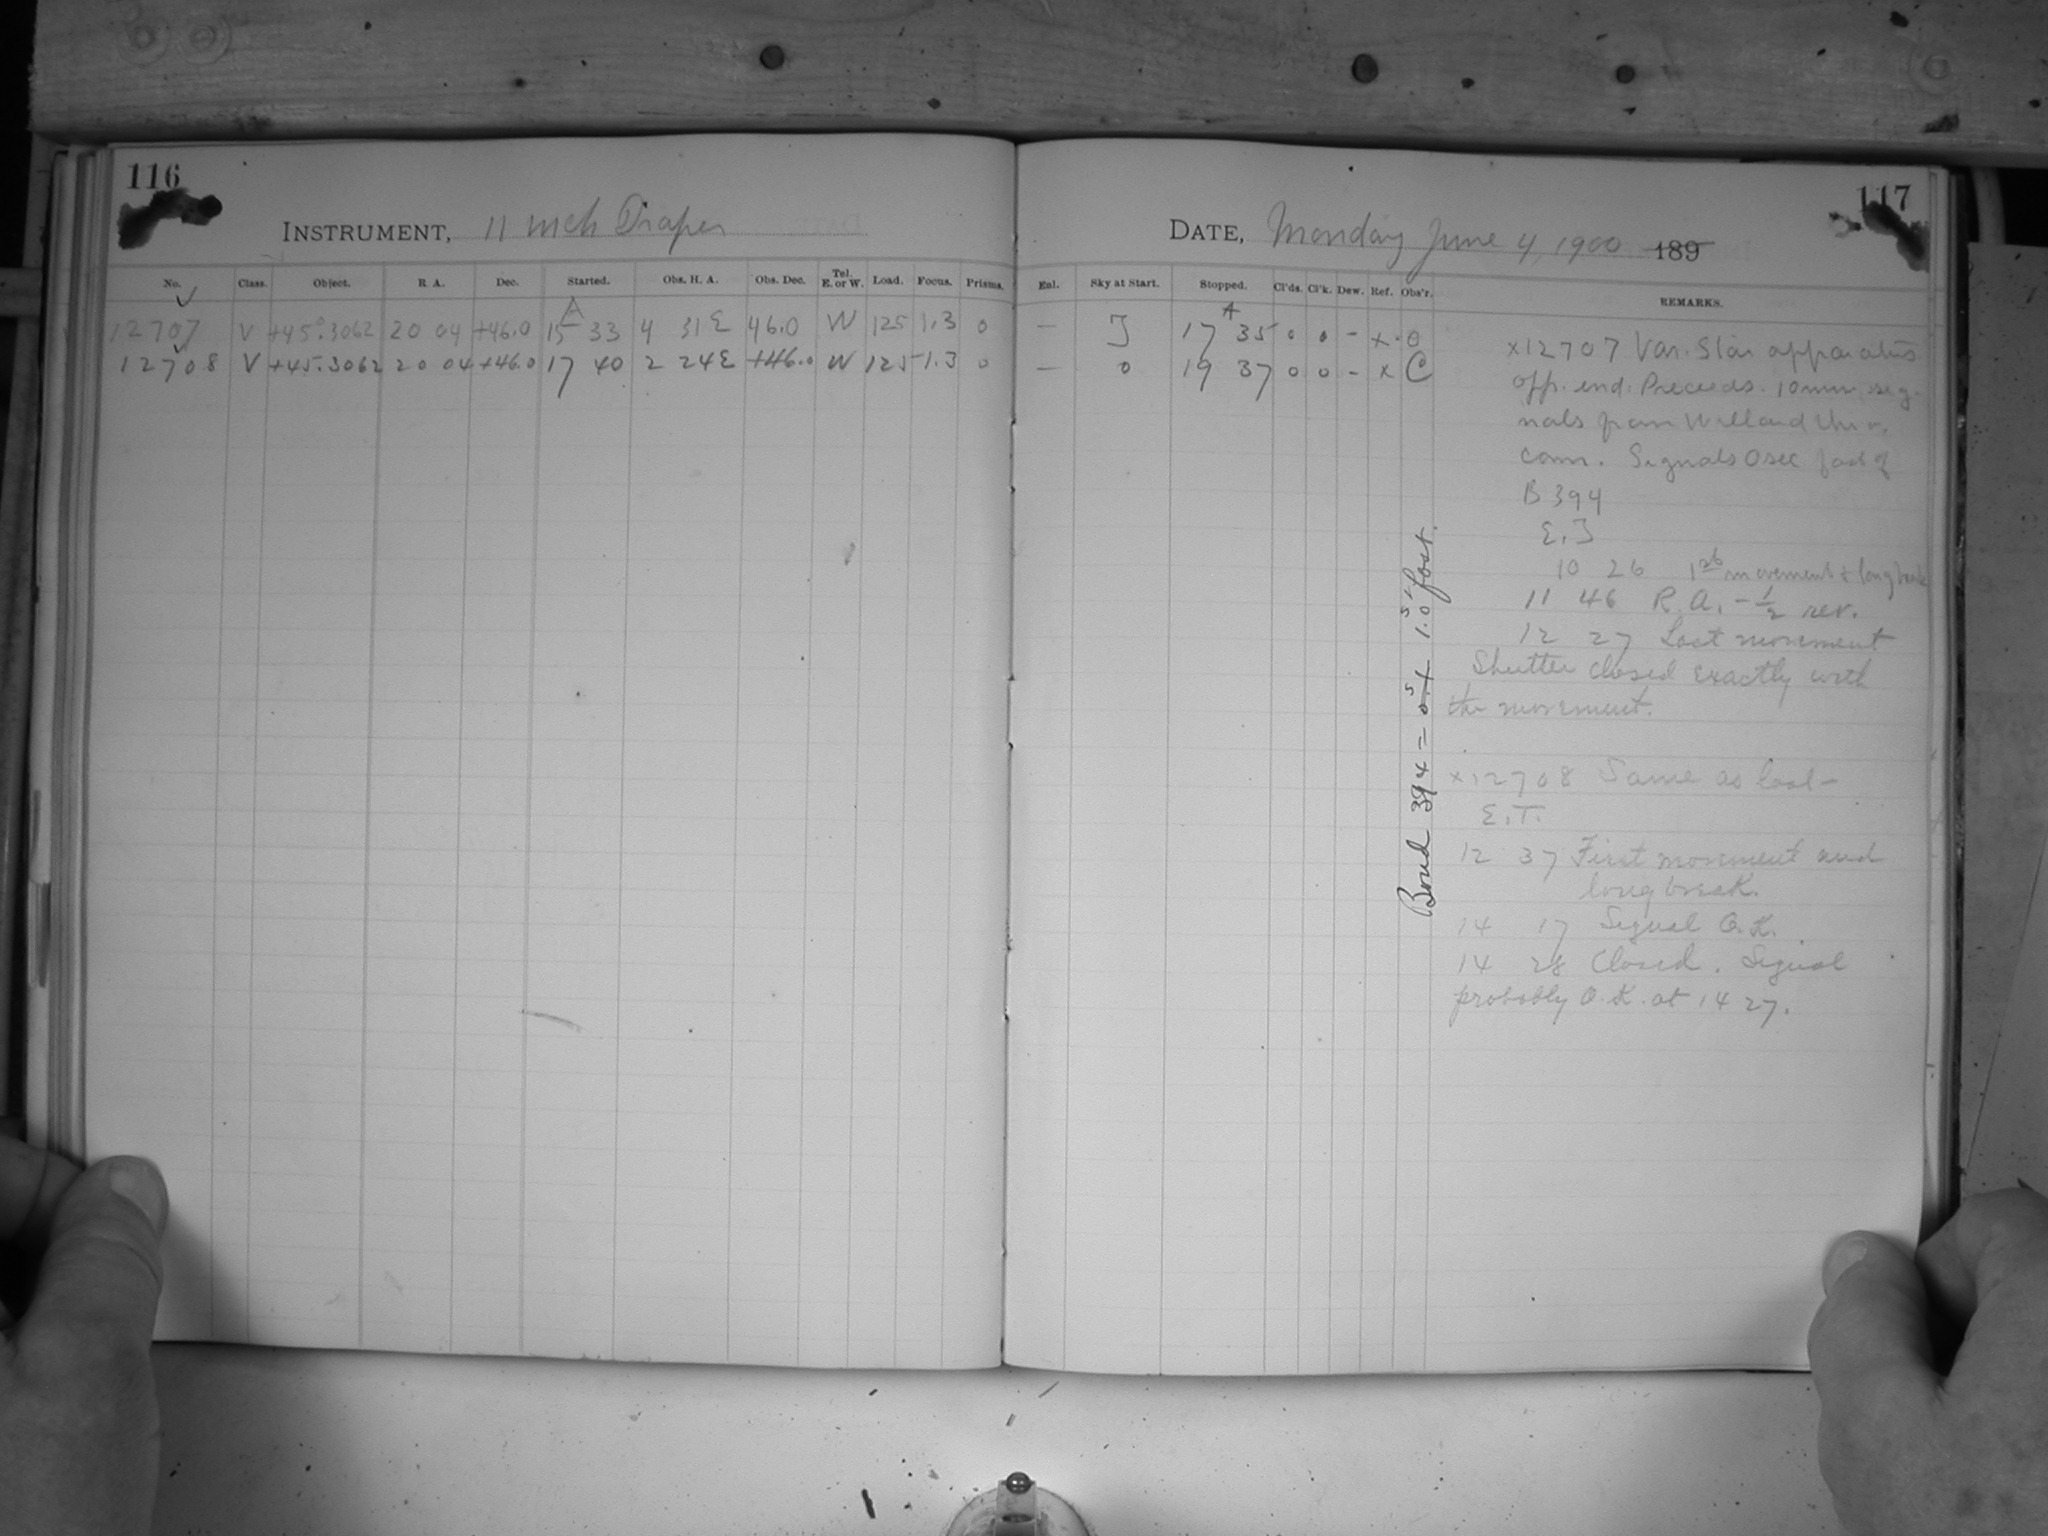 116
INSTRUMENT, 11 inch Draper
No. Class. Object. R. A. Dec. Started. Obs. H. A. Obs. Dec. Tel. E. or W. Load. Focus. Prisms.
12707 V +45°.3062 20 04 +46.0 15 33 4 31 E 46.0 W 125 1.3 0
12708 V +45.3062 20 04 +46.0 17 40 2 24 E +46.0 W 125 1.3 0
117
DATE, Monday June 4, 1900 189
Enl. Sky at Start. Stopped. Cl'ds. Cl'k. Dew. Ref. Obs'r. REMARKS.
— 17 35 0 0 - x O
— 0 19 37 0 0 - x C
x12707 Var. Star apparatus
opp. end. Preceeds. 10 min. sig-
nals from Willard
Signals 0 sec fast of
B 394
10 26 1st movement & long break
11 46 R.A. - 1/2 rev.
12 27 Last movement
Shutter closed exactly with
the movement.
x12708 Same as last-
E.T.
12 37 First movement and
long break.
14 17 Signal O.K.
14 28 Closed. Signal
probably O.K. at 14 27.
Bond 394 = 1.0s fast.